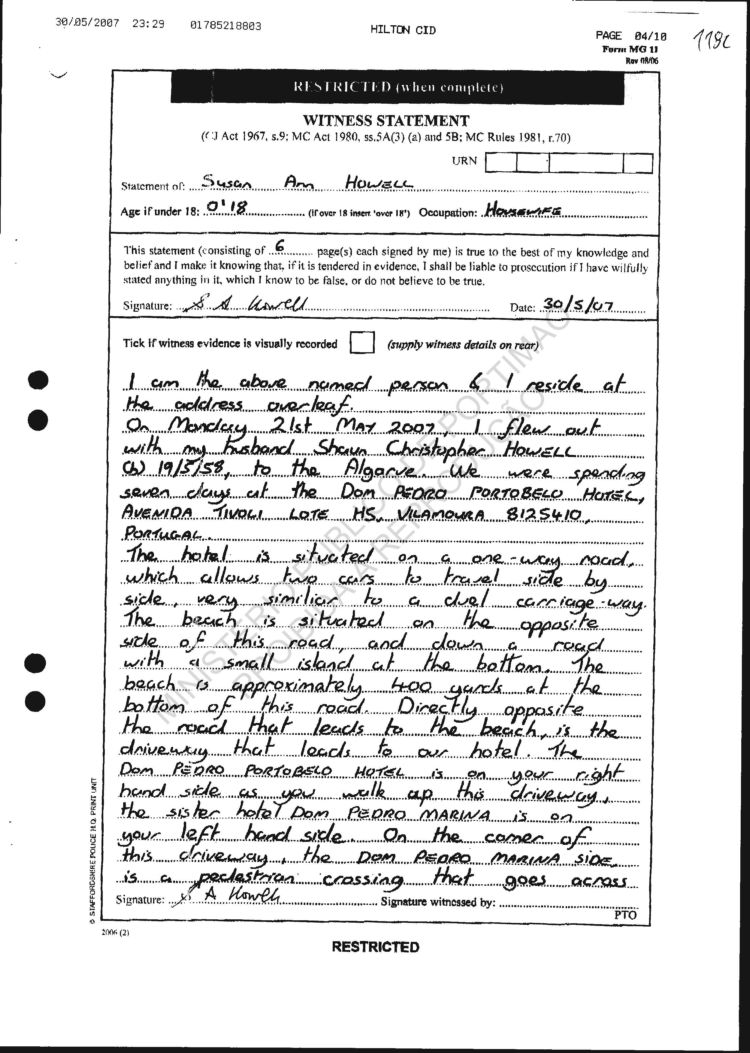 30/05/2007 23:29 01785218803 HILTON CID PAGE 04/10
118c
Form MG 11
Rev 08/06
RESTRICTED (when complete)
WITNESS STATEMENT
(CJ Act 1967, s.9; MC Act 1980, ss.5A(3) (a) and 5B; MC Rules 1981, r.70)
URN
Statement of: Susan Ann HOWELL
Age if under 18: O'18 (if over 18 insert 'over 18') Occupation: HOUSEWIFE
This statement (consisting of 6 page(s) each signed by me) is true to the best of my knowledge and
belief and I make it knowing that, if it is tendered in evidence, I shall be liable to prosecution if I have wilfully
stated anything in it, which I know to be false, or do not believe to be true.
Signature: S A Howell Date: 30/5/07
Tick if witness evidence is visually recorded (supply witness details on rear)
I am the above named person & I reside at
the address overleaf.
On Monday 21st MAY 2007, I flew out
with my husband Shaun Christopher HOWELL
(b) 19/5/58, to the Algarve. We were spending
seven days at the DOM PEDRO PORTOBELO HOTEL,
AVENIDA TIVOLI LOTE HS, VILAMOURA 8125410,
PORTUGAL.
The hotel is situated on a one-way road,
which allows two cars to travel side by
side, very similiar to a duel carriage-way.
The beach is situated on the opposite
side of this road, and down a road
with a small island at the bottom. The
beach is approximately 400 yards at the
bottom of this road. Directly opposite
the road that leads to the beach, is the
driveway that leads to our hotel. The
DOM PEDRO PORTOBELO HOTEL is on your right
hand side as you walk up this driveway,
the sister hotel DOM PEDRO MARINA is on
your left hand side. On the corner of
this driveway, the DOM PEDRO MARINA SIDE,
is a pedestrian crossing that goes across
Signature: S A Howell Signature witnessed by:
PTO
2006 (2)
RESTRICTED
© STAFFORDSHIRE POLICE H.Q. PRINT UNIT